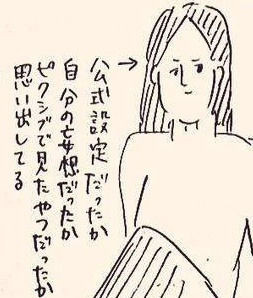 公式設定だったか
自分の妄想だったか
ピクシブで見たやつだったか
思い出してる